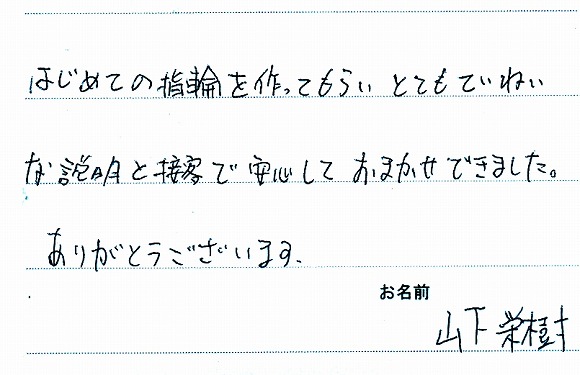 はじめての指輪を作ってもらい とてもていねい
な説明と接客で安心して おまかせできました。
ありがとうございます.
お名前
山下 栄樹